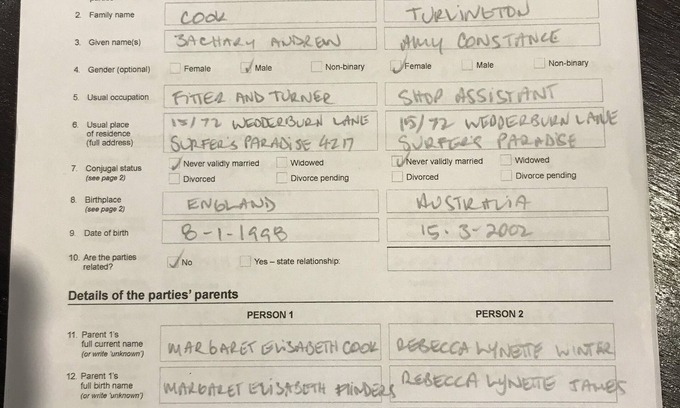 2. Family name COOK TURLINGTON
3. Given name(s) ZACHARY ANDREW AMY CONSTANCE
4. Gender (optional) Female Male Non-binary Female Male Non-binary
5. Usual occupation FITTER AND TURNER SHOP ASSISTANT
6. Usual place of residence (full address) 15/72 WEDDERBURN LANE SURFER'S PARADISE 4217 15/72 WEDDERBURN LANE SURFER'S PARADISE
7. Conjugal status (see page 2) Never validly married Widowed Divorced Divorce pending Never validly married Widowed Divorced Divorce pending
8. Birthplace (see page 2) ENGLAND AUSTRALIA
9. Date of birth 8-1-1998 15.3-2002
10. Are the parties related? No Yes – state relationship:
Details of the parties' parents
PERSON 1 PERSON 2
11. Parent 1's full current name (or write 'unknown') MARGARET ELISABETH COOK REBECCA LYNETTE WINTER
12. Parent 1's full birth name (or write 'unknown') MARGARET ELISABETH FLINDERS REBECCA LYNETTE JAMES